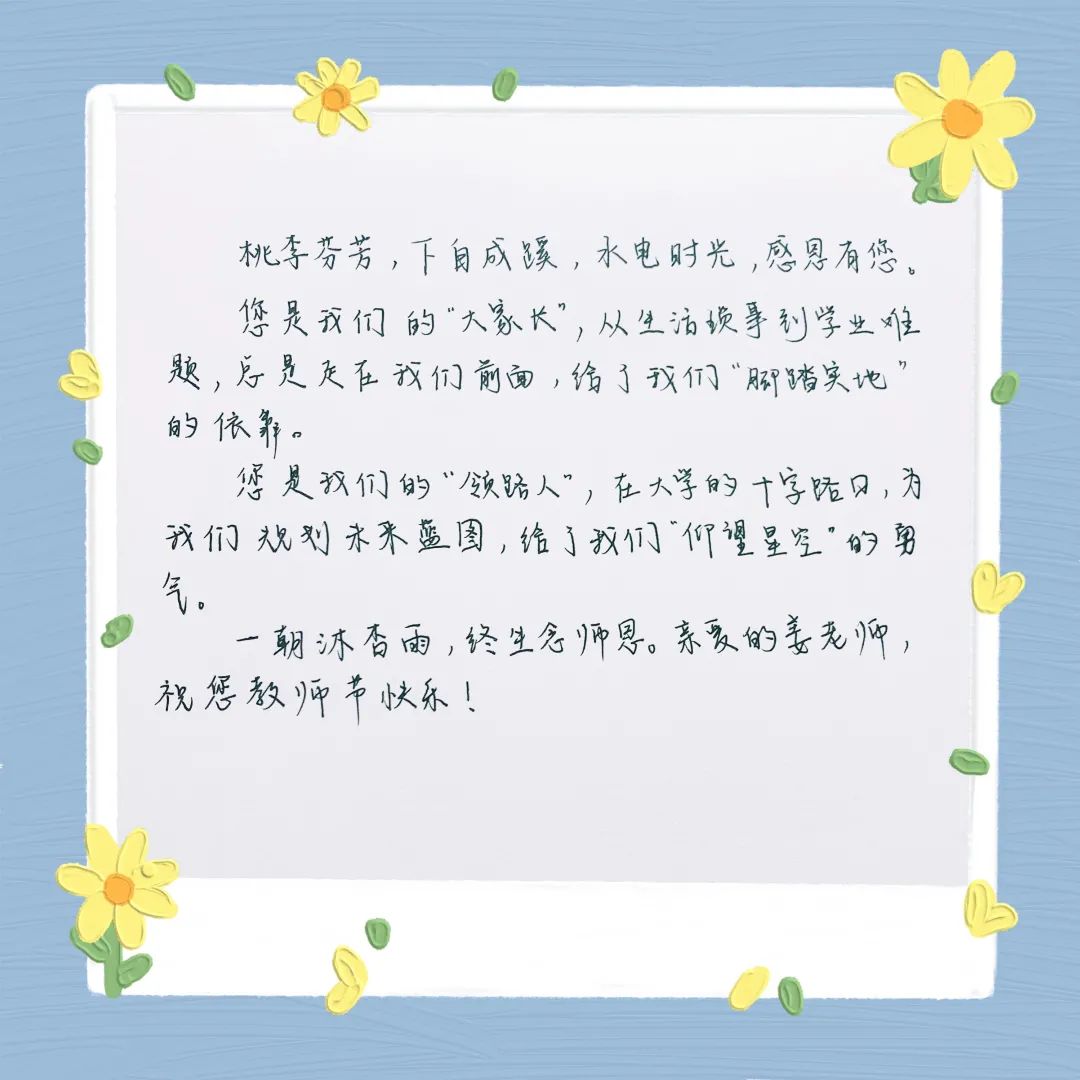 桃李芬芳，下自成蹊，水电时光，感恩有您。
您是我们的“大家长”，从生活琐事到学业难
题，总是走在我们前面，给了我们“脚踏实地”
的依靠。
您是我们的“领路人”，在大学的十字路口，为
我们规划未来蓝图，给了我们“仰望星空”的勇
气。
一朝沐杏雨，终生念师恩。亲爱的姜老师，
祝您教师节快乐！